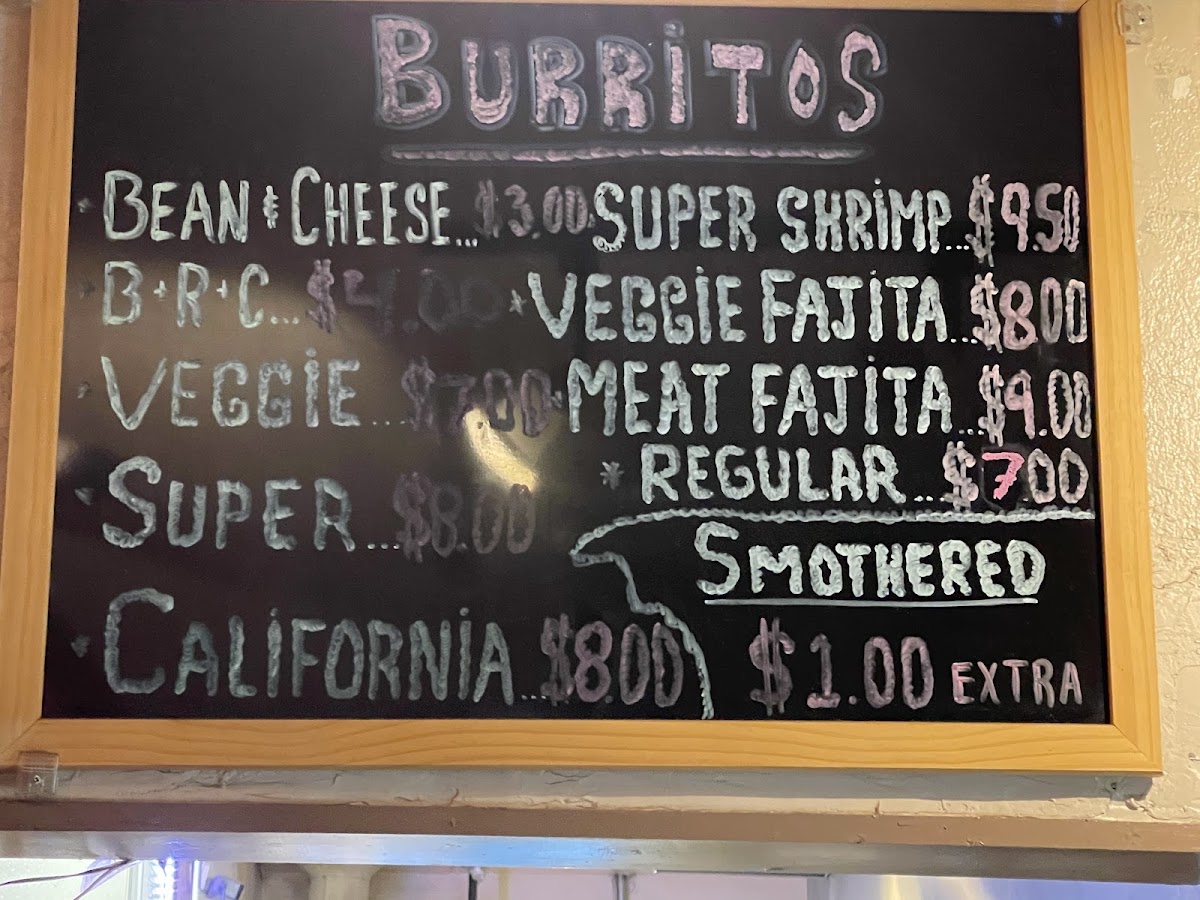 BURRITOS
BEAN & CHEESE... $3.00
B+R+C... $4.00
VEGGIE... $7.00
SUPER... $8.00
CALIFORNIA... $8.00
SUPER SHRIMP... $9.50
VEGGIE FAJITA... $8.00
MEAT FAJITA... $9.00
REGULAR... $7.00
SMOTHERED
$1.00 EXTRA